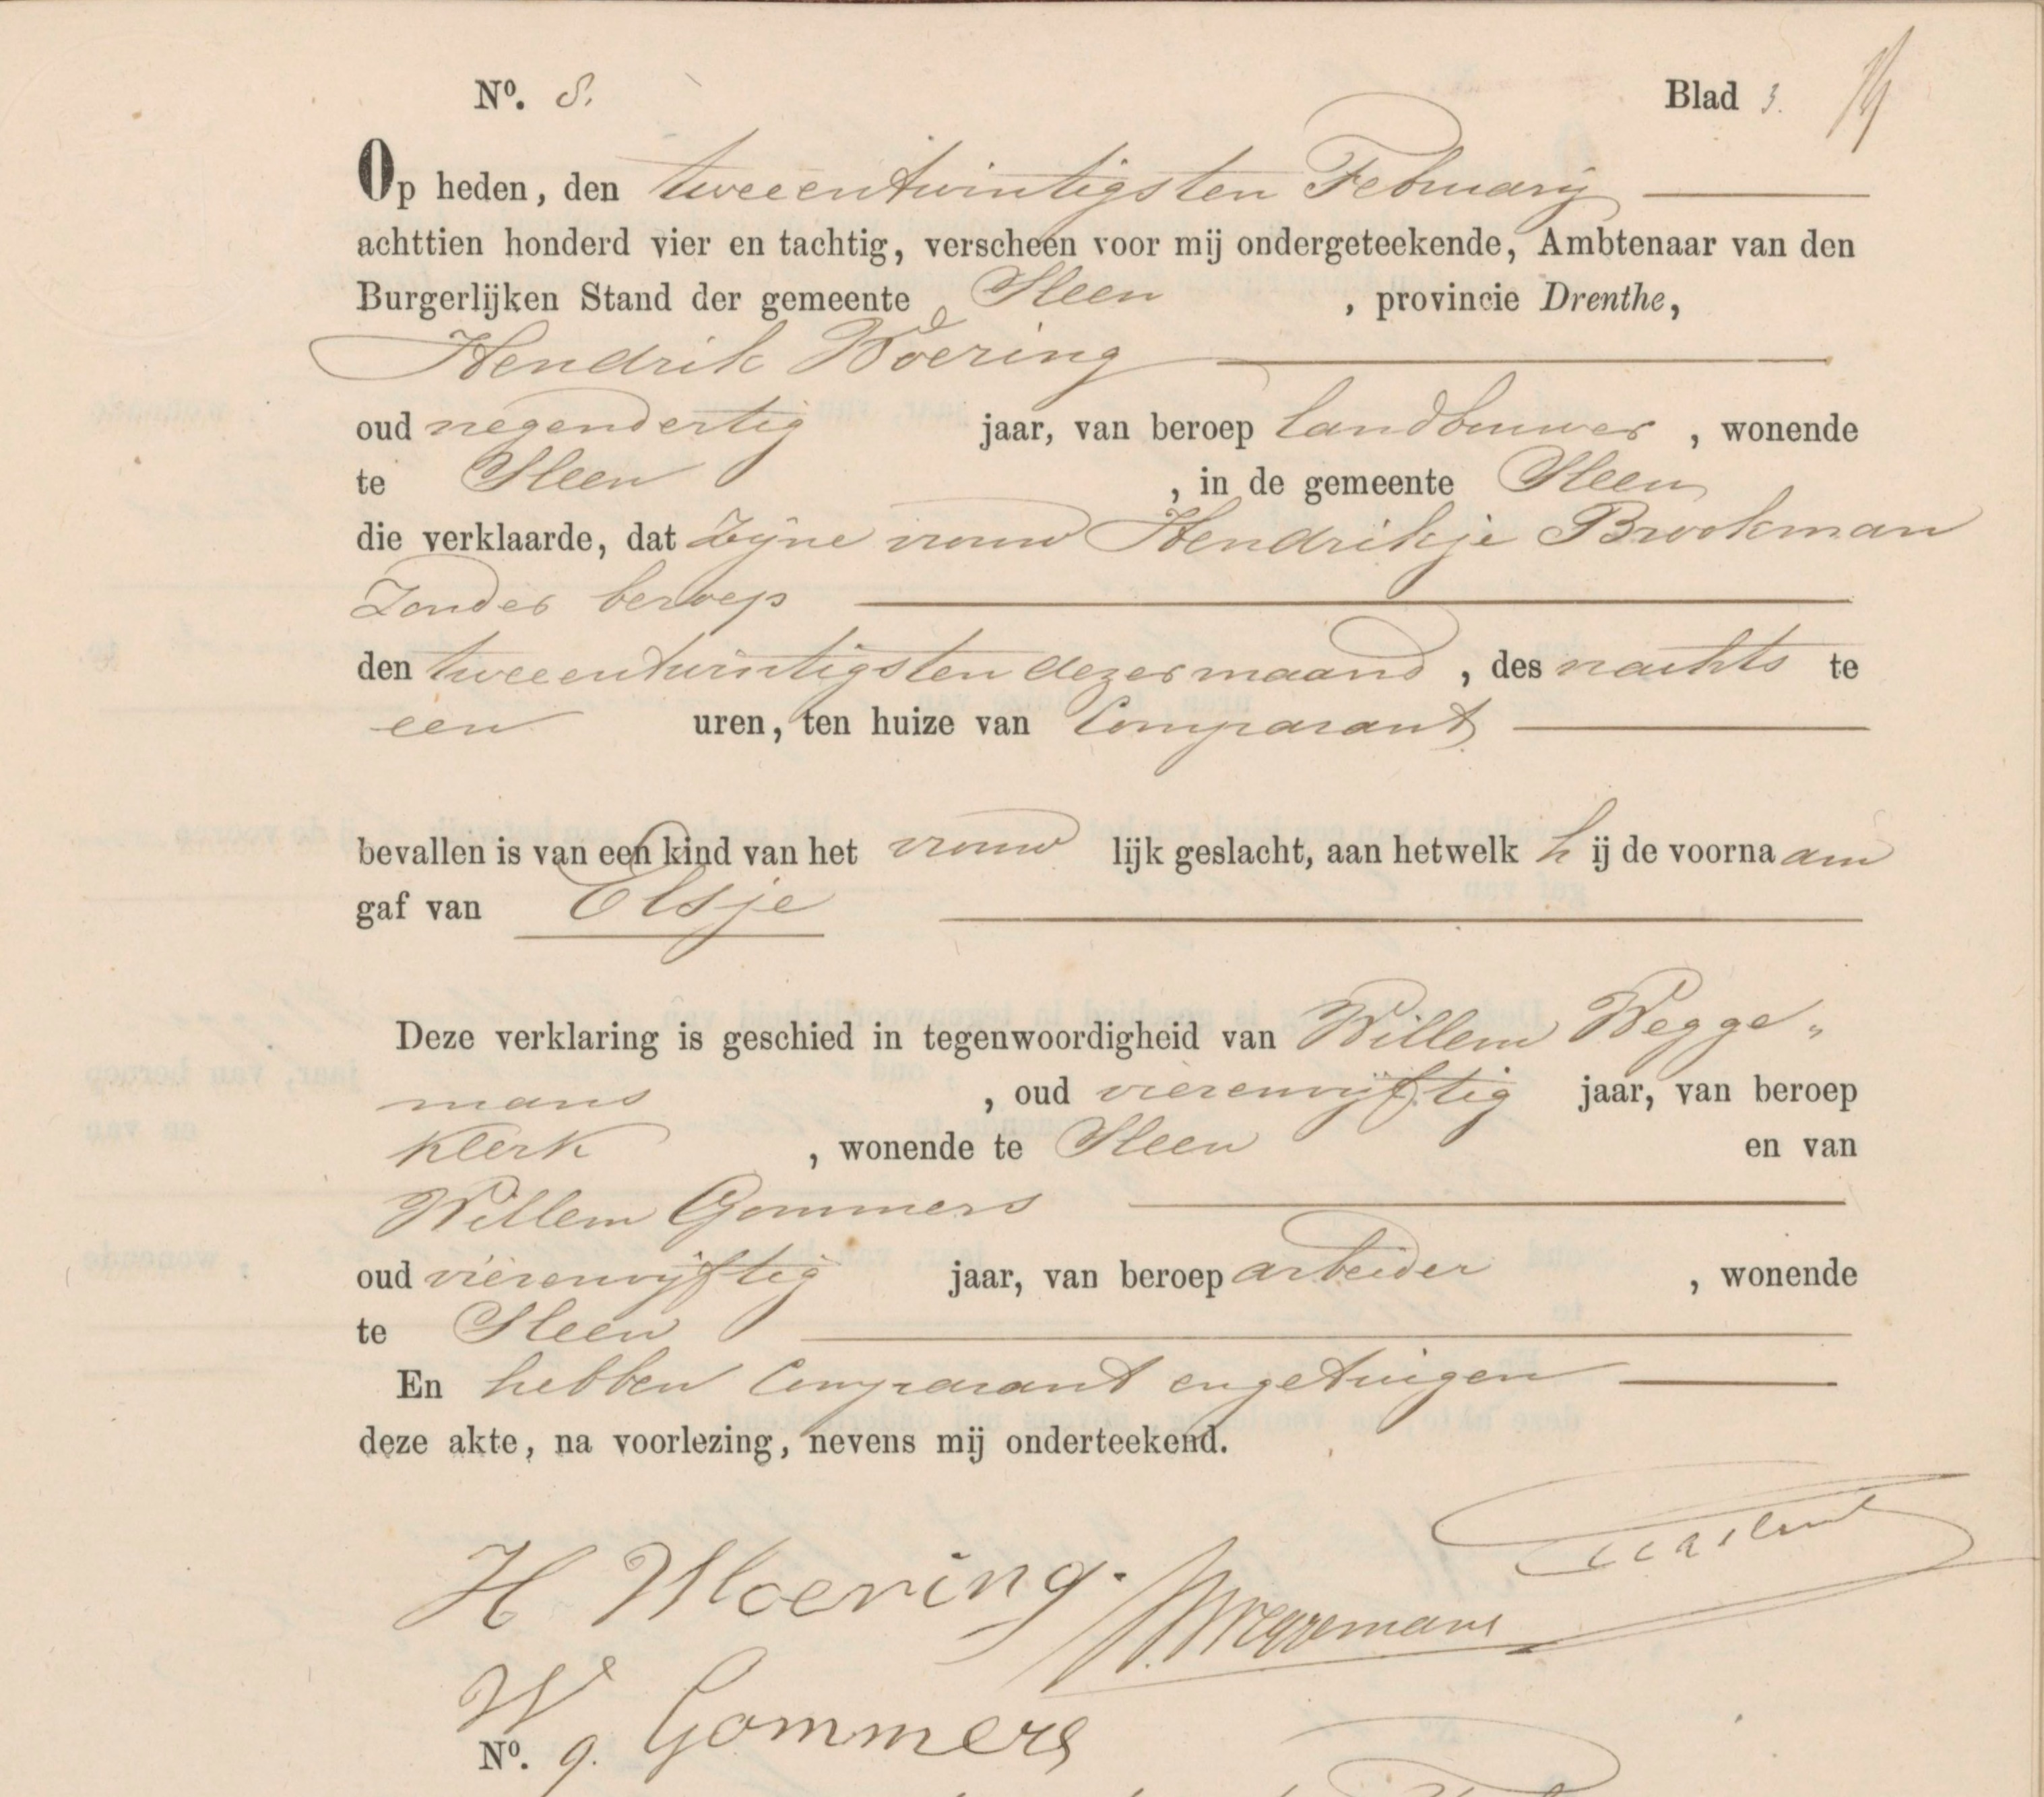 Nº. 8. Blad 3.
Op heden, den tweeentwintigsten February
achttien honderd vier en tachtig, verscheen voor mij ondergeteekende, Ambtenaar van den
Burgerlijken Stand der gemeente Sleen, provincie Drenthe,
Hendrik Woering
oud negendertig jaar, van beroep landbouwer, wonende
te Sleen, in de gemeente Sleen
die verklaarde, dat Zijne vrouw Hendrikje Brookman
Zonder beroep
den tweeentwintigsten dezer maand, des nachts te
een uren, ten huize van Comparant
bevallen is van een kind van het vrouw lijk geslacht, aan hetwelk h ij de voorna am
gaf van Elsje
Deze verklaring is geschied in tegenwoordigheid van Willem Wegge„
mans, oud vierenvijftig jaar, van beroep
Klerk, wonende te Sleen en van
Willem Gommers
oud vierenvijftig jaar, van beroep arbeider, wonende
te Sleen
En hebben Comparant en getuigen
deze akte, na voorlezing, nevens mij onderteekend.
H Woering.
Weggemans
W Gommers
Nº. 9.